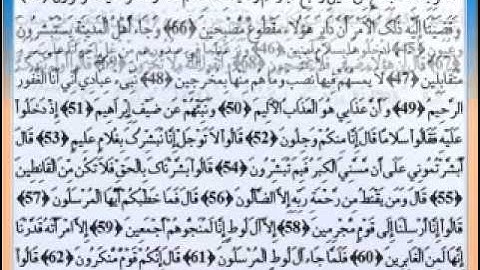 وَقَضَيْنَا إِلَيْهِ ذَلِكَ الْأَمْرَ أَنَّ دَابِرَ هَؤُلَاءِ مَقْطُوعٌ مُصْبِحِينَ ﴿66﴾ وَجَاءَ أَهْلُ الْمَدِينَةِ يَسْتَبْشِرُونَ
مُتَقَابِلِينَ ﴿47﴾ لَا يَمَسُّهُمْ فِيهَا نَصَبٌ وَمَا هُمْ مِنْهَا بِمُخْرَجِينَ ﴿48﴾ نَبِّئْ عِبَادِي أَنِّي أَنَا الْغَفُورُ
الرَّحِيمُ ﴿49﴾ وَأَنَّ عَذَابِي هُوَ الْعَذَابُ الْأَلِيمُ ﴿50﴾ وَنَبِّئْهُمْ عَنْ ضَيْفِ إِبْرَاهِيمَ ﴿51﴾ إِذْ دَخَلُوا
عَلَيْهِ فَقَالُوا سَلَامًا قَالَ إِنَّا مِنْكُمْ وَجِلُونَ ﴿52﴾ قَالُوا لَا تَوْجَلْ إِنَّا نُبَشِّرُكَ بِغُلَامٍ عَلِيمٍ ﴿53﴾ قَالَ
أَبَشَّرْتُمُونِي عَلَى أَنْ مَسَّنِيَ الْكِبَرُ فَبِمَ تُبَشِّرُونَ ﴿54﴾ قَالُوا بَشَّرْنَاكَ بِالْحَقِّ فَلَا تَكُنْ مِنَ الْقَانِطِينَ
﴿55﴾ قَالَ وَمَنْ يَقْنَطُ مِنْ رَحْمَةِ رَبِّهِ إِلَّا الضَّالُّونَ ﴿56﴾ قَالَ فَمَا خَطْبُكُمْ أَيُّهَا الْمُرْسَلُونَ ﴿57﴾
قَالُوا إِنَّا أُرْسِلْنَا إِلَى قَوْمٍ مُجْرِمِينَ ﴿58﴾ إِلَّا آلَ لُوطٍ إِنَّا لَمُنَجُّوهُمْ أَجْمَعِينَ ﴿59﴾ إِلَّا امْرَأَتَهُ قَدَّرْنَا
إِنَّهَا لَمِنَ الْغَابِرِينَ ﴿60﴾ فَلَمَّا جَاءَ آلَ لُوطٍ الْمُرْسَلُونَ ﴿61﴾ قَالَ إِنَّكُمْ قَوْمٌ مُنْكَرُونَ ﴿62﴾ قَالُوا